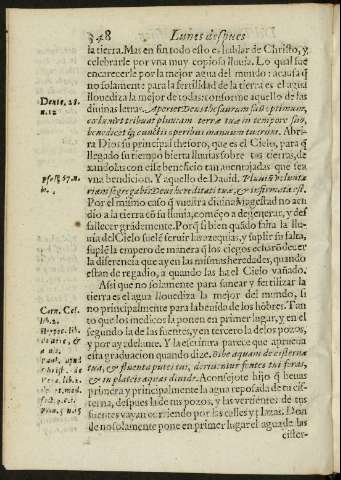 348 Lunes despues
la tierra. Mas en fin todo esto es hablar de Christo, y
celebrarle por vna muy copiosa lluuia. Lo qual fue
encarecerle por la mejor agua del mundo: a causa q̃
no solamente para la fertilidad de la tierra es el agua
Deute. 28. n. 12
llouediza la mejor de todas: conforme aquello de las
diuinas letras. Aperiet Deus thesaurum suũ optimum,
cœlum vt tribuat pluuiam terræ tuæ in tempore suo,
benedicet q; cunctis operibus manuum tuarum. Abri-
ra Dios su principal thesoro, que es el Cielo, para q̃
llegado su tiempo vierta lluuias sobre tus tierras, de
xandolas con este beneficio tan auentajadas que sea
Psal. 67. n.
vna bendicion. Y aquello de Dauid. Pluuiã volunta
riam segregabis Deus hereditati tuæ, & infirmata est.
Por el mismo caso q̃ vuestra diuina Magestad no acu
dio a la tierra cõ su lluuia, començo a degenerar, y des
fallecer grãdemente. Porq̃ si bien quãdo falta la llu-
uia del Cielo suelẽ seruir las azequias, y suplir su falta,
suplẽ la empero de manera q̃ los ciegos echarã de ver
la diferencia que ay en las mismas heredades, quando
estan de regadio, a quando las ha el Cielo vañado.
Assi que no solamente para sanear y fertilizar la
tierra es el agua llouediza la mejor del mundo, si
Corn. Cel. lib. 2.
no principalmente para la beuida de los hõbres. Tan
to que los medicos la ponen en primer lugar, y en el
segundo la de las fuentes, y en tercero la de los pozos,
y por ay adelante. Y la escritura parece que aprueua
esta graduacion quando dize. Bibe aquam de cisterna
tua, & fluenta putei tui, deriuentur fontes tui foras,
& in plateis aquas diuide. Aconsejote hijo q̃ beuas
primera y principalmente la agua reposada de tu cis-
Prou. 5. n. 15
terna, despues la de tus pozos, y las vertientes de tus
fuentes vayan corriendo por las calles y plazas. Don
de no solamente pone en primer lugar el agua de las
cister-